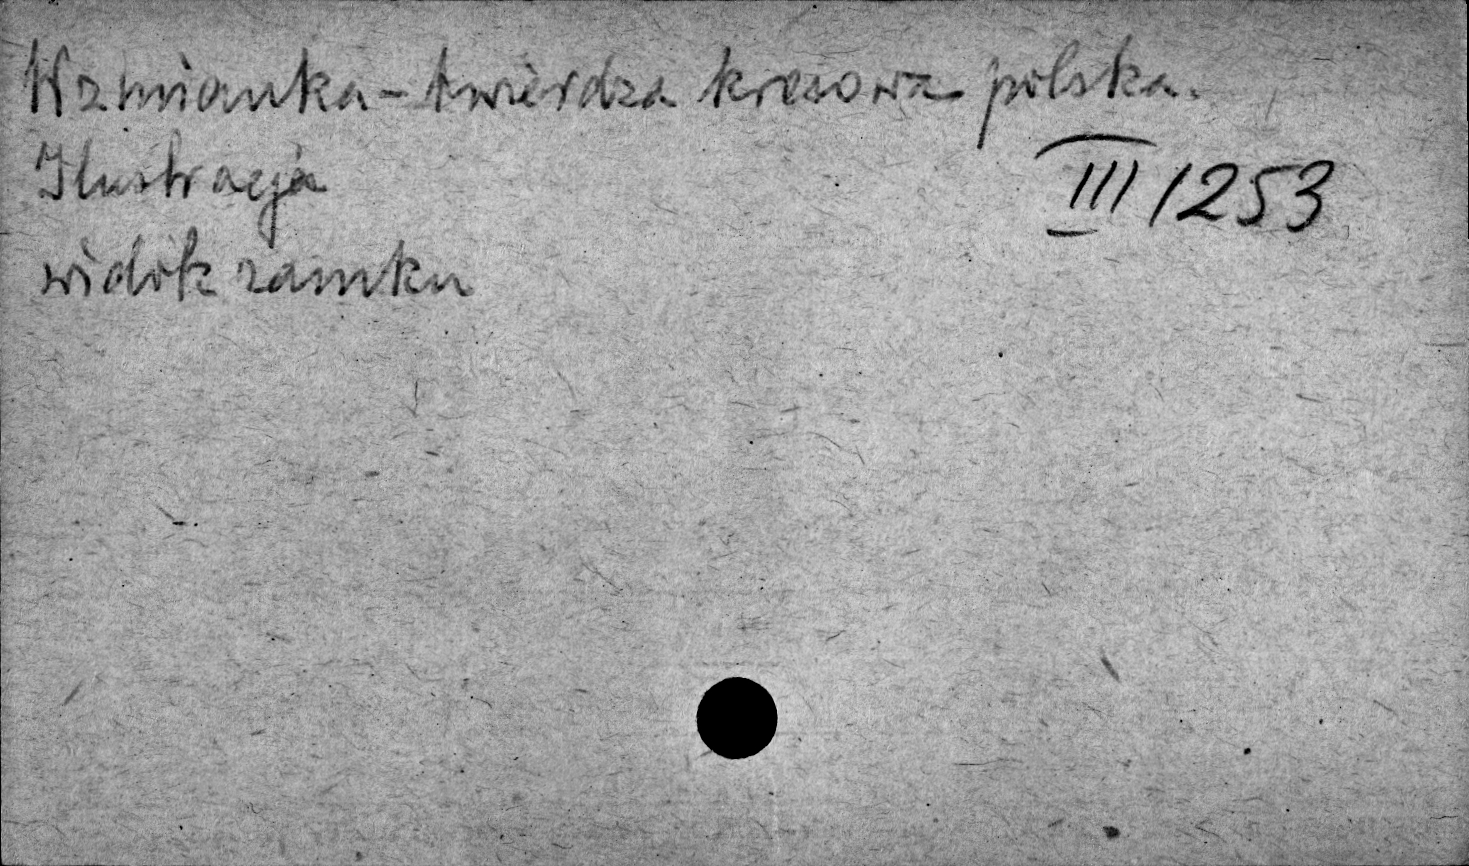 Wzmianka – twierdza kresowa polska.
Ilustracja
III 1253
widok zamku